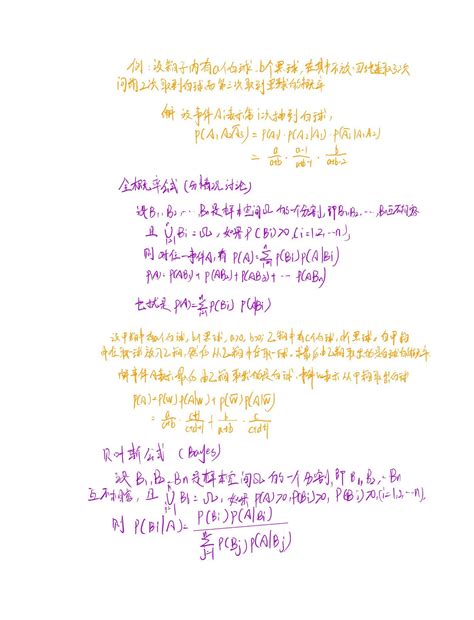 例：设袋子内有a个白球，b个黑球，在其中不放回地连取3次
问前2次取到白球而第三次取到黑球的概率
解 设事件Ai表示第i次抽到白球，
P(A₁A₂A̅₃) = P(A₁)·P(A₂|A₁)·P(A̅₃|A₁A₂)
= a/(a+b) · (a-1)/(a+b-1) · b/(a+b-2)
全概率公式（分情况讨论）
设B₁, B₂, … Bn是样本空间Ω 的一个分割，即B₁, B₂, … Bn互不相容
且 ⋃ᵢ₌₁ⁿ Bi = Ω，如果 P(Bi)>0, (i=1,2,…n),
则 对任一事件A, 有 P(A)=∑ᵢ₌₁ⁿ P(Bi)P(A|Bi)
P(A) = P(AB₁) + P(AB₂) + P(AB₃) + … P(ABn)
也就是 P(A)=∑ᵢ₌₁ⁿ P(Bi) P(A|Bi)
设甲箱中有a个白球，b个黑球，a>0, b>0; 乙箱中有c个白球，d个黑球，自甲箱
中任取一球放入乙箱，然后从乙箱中任取一球，求最后由乙箱取出的是白球的概率
解 事件A表示最后由乙箱取出的是白球，事件W表示从甲箱取出白球
P(A) = P(W)P(A|W) + P(W̅)P(A|W̅)
= a/(a+b) · (c+1)/(c+d+1) + b/(a+b) · c/(c+d+1)
贝叶斯公式（Bayes）
设 B₁, B₂ … Bn 是样本空间Ω 的一个分割，即 B₁, B₂, … Bn
互不相容，且 ⋃ᵢ₌₁ⁿ Bi = Ω，如果 P(A)>0, P(Bi)>0, (i=1,2,…n),
则 P(Bi|A) = P(Bi)P(A|Bi) / ∑ⱼ₌₁ⁿ P(Bj)P(A|Bj)